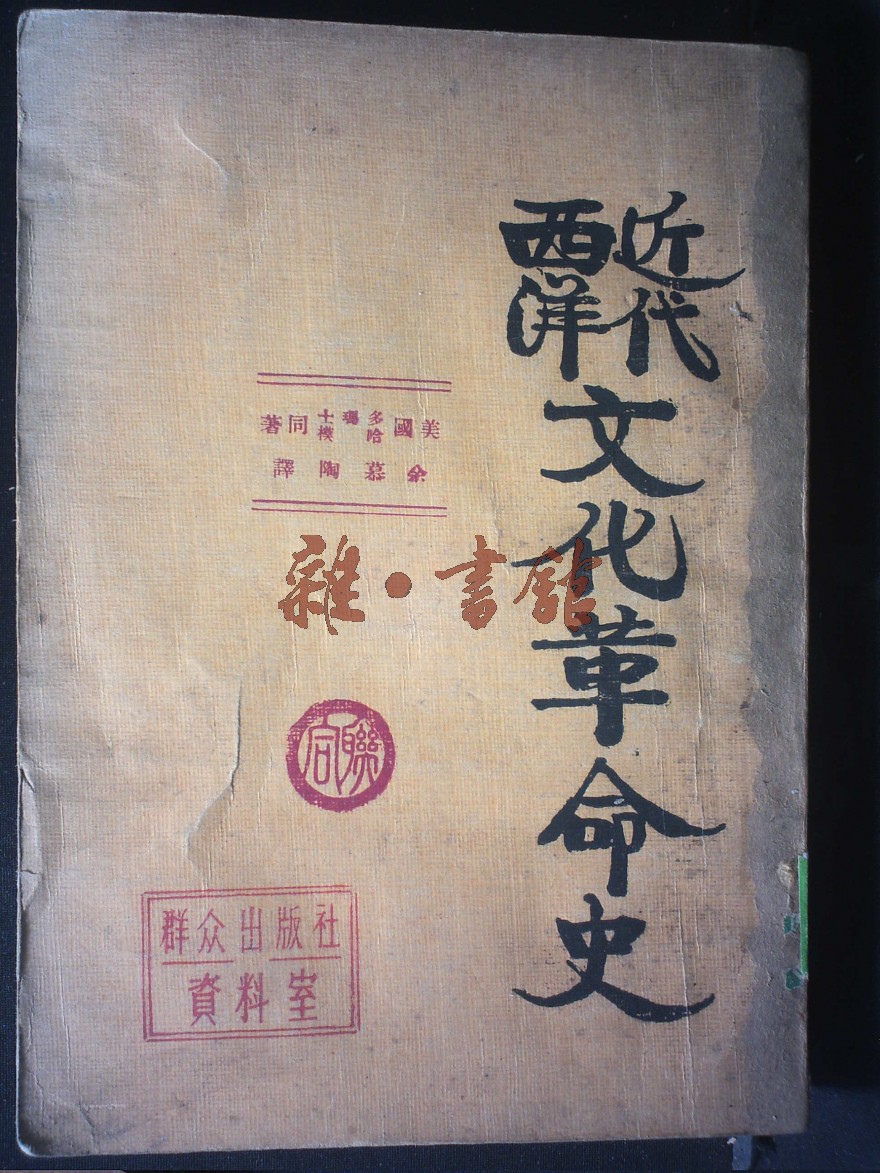 近代
西洋
文化革命史
美國多瑪士 哈 同著
余慕陶譯
雜·書館
聯合
群众出版社
資料室